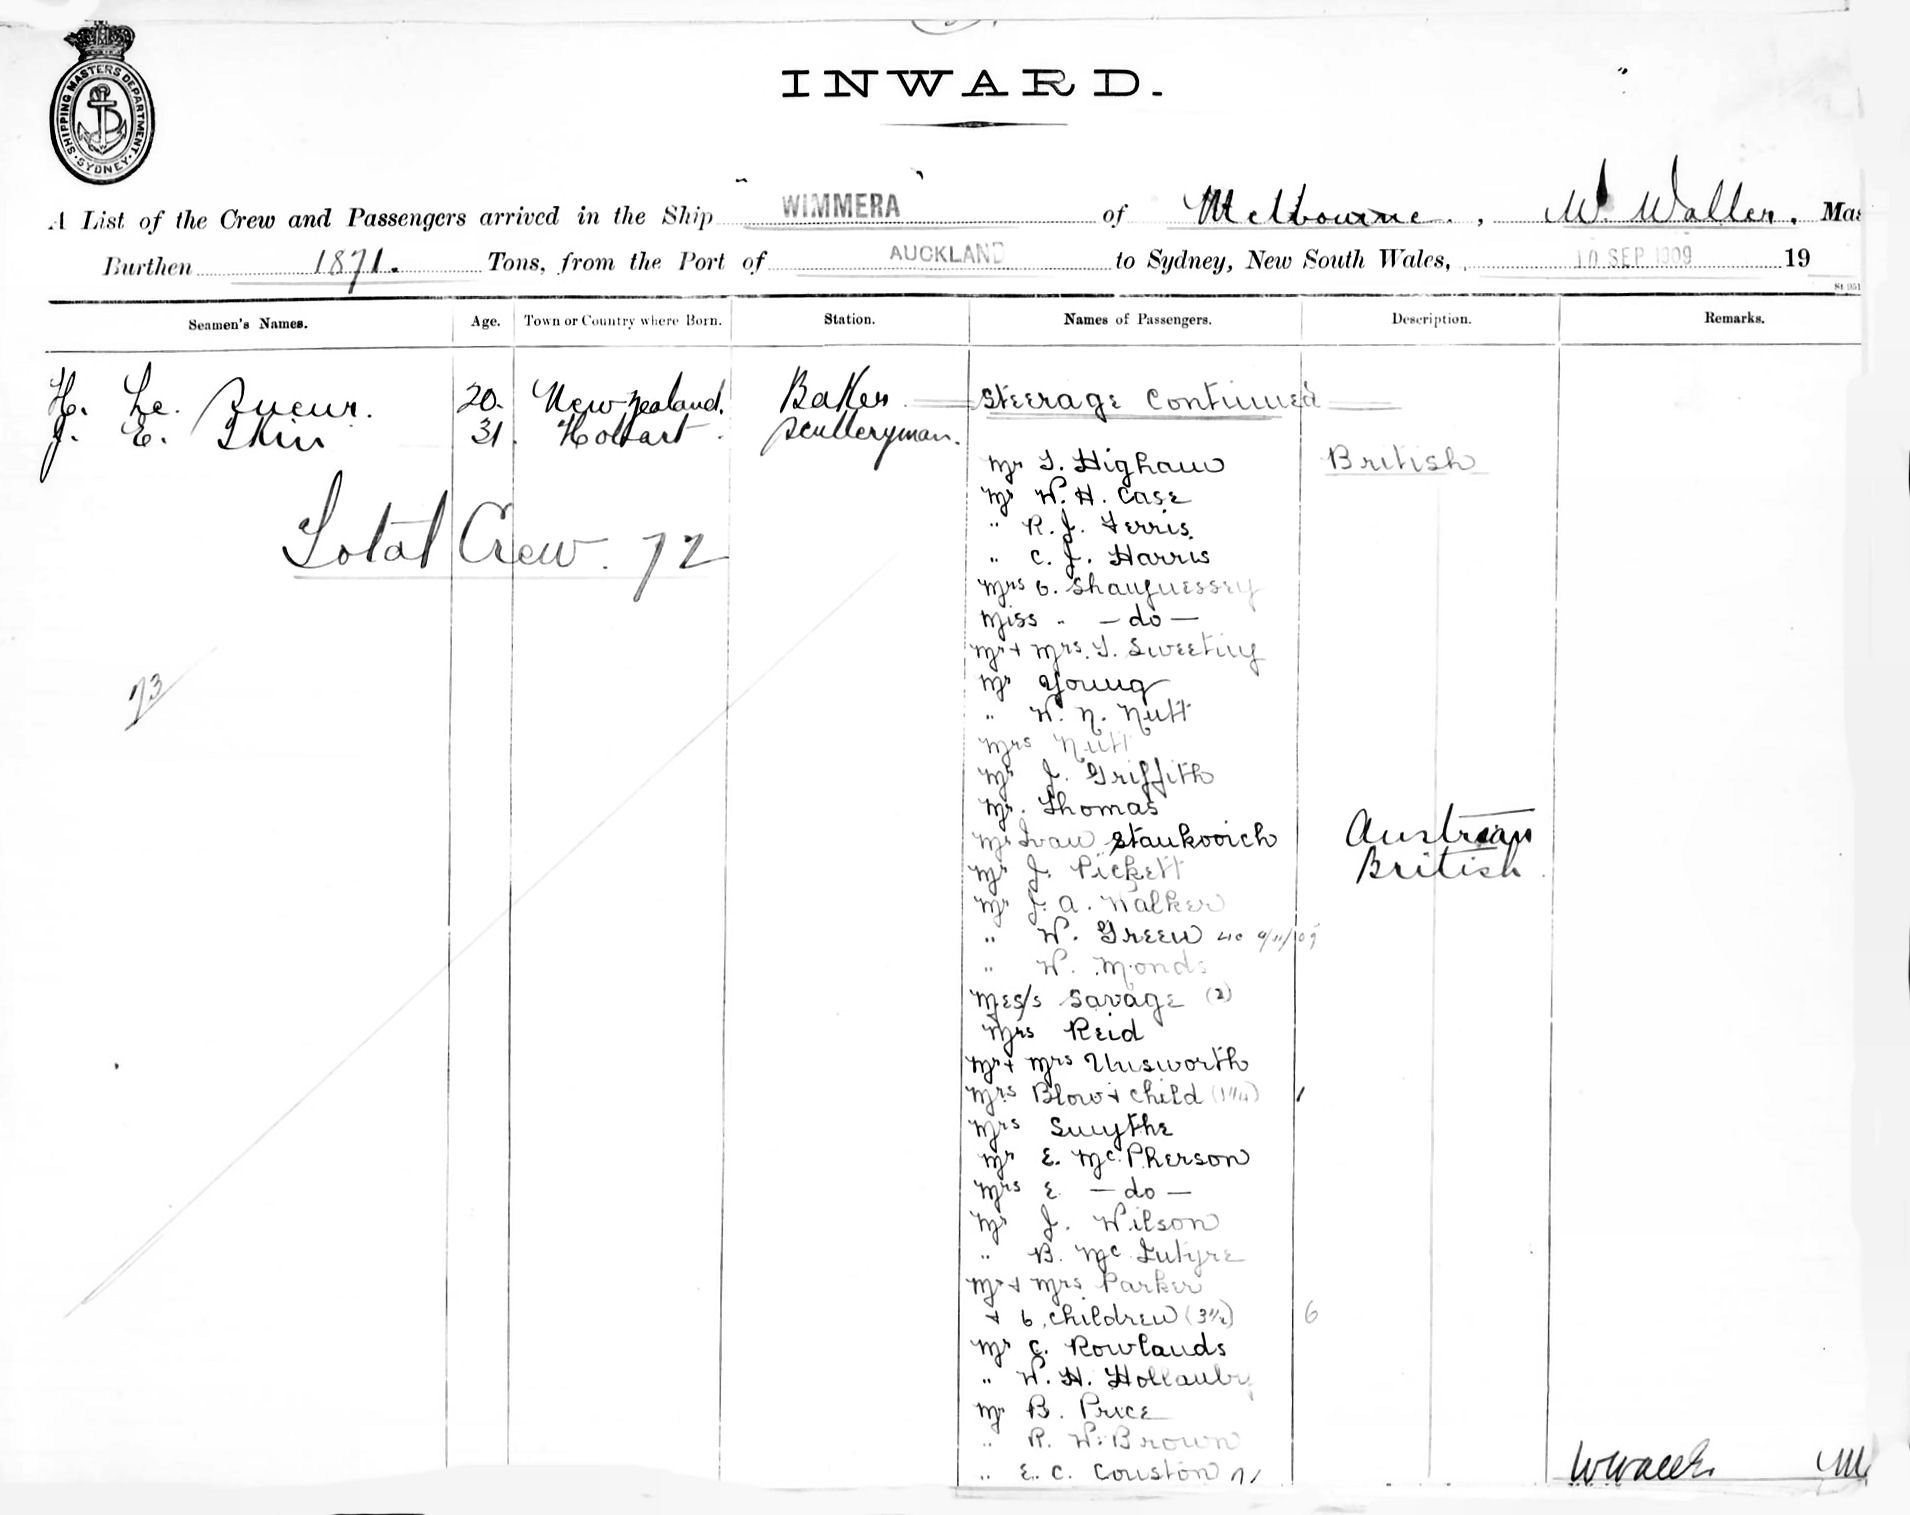 INWARD.
SHIPPING MASTERS DEPARTMENT. SYDNEY
A List of the Crew and Passengers arrived in the Ship " WIMMERA " of Melbourne, W. Waller, Mas
Burthen 1871. Tons, from the Port of AUCKLAND to Sydney, New South Wales, 10 SEP 1909 19
Seamen's Names. Age. Town or Country where Born. Station. Names of Passengers. Description. Remarks.
H. Le. Sueur. 20. New Zealand. Baker Steerage Continued
J. E. Skin 31. Hobart. Sculleryman.
Mr T. Higham British
Mr W. H. Case
Total Crew. 72
" R. J. Ferris.
" C. J. Harris
Mrs O. Shaughnessey
Miss " — do —
Mr + Mrs. T. Sweeting
73
Mr Young
" W. N. Nutt
Mrs Nutt
Mr J. Griffith
Mr. Thomas
Mr Ivan Stankovich Austrian
Mr J. Pickett British
Mr J. A. Walker
" W. Green 9/11/09
" W. Monds
Mes/s Savage (2)
Mrs Reid
Mr + Mrs Unsworth
Mrs Blow + child 1
Mrs Smythe
Mr E. McPherson
Mrs E — do —
Mr J. Wilson
" B. McIntyre
Mr + Mrs Parker
+ 6 children 6
Mr C. Rowlands
" W. H. Hollamby
Mr B. Price
" R. W. Brown
" E. C. Couston 71